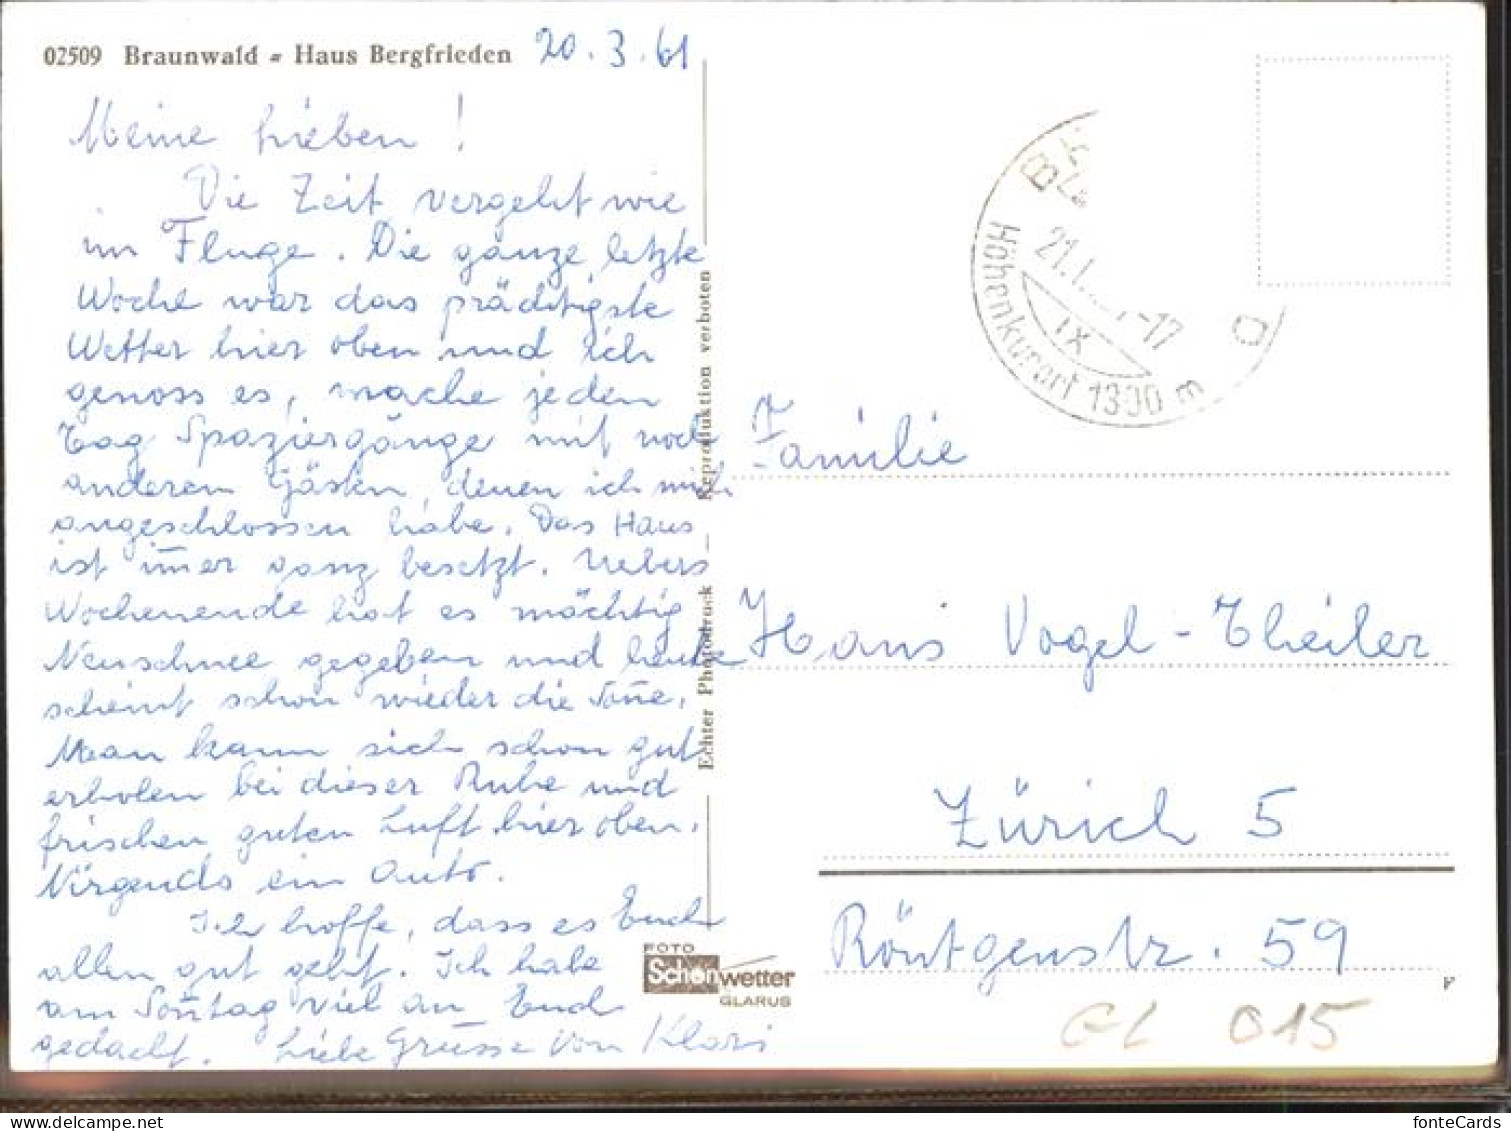 02509 Braunwald - Haus Bergfrieden 20.3.61
Meine Lieben!
Die Zeit vergeht wie
im Fluge. Die ganze letzte
Woche war das prächtigste
Wetter hier oben und ich
genoss es, mache jeden
Tag Spaziergänge mit noch
anderen Gästen, denen ich mich
angeschlossen habe. Das Haus
ist im̅er ganz besetzt. Uebers
Wochenende hat es mächtig
Neuschnee gegeben und heute
scheint schon wieder die Son̅e.
Man kann sich schon gut
erholen bei dieser Ruhe und
frischen guten Luft hier oben.
Nirgends ein Auto.
Ich hoffe, dass es Euch
allen gut geht. Ich habe
am Son̅tag viel an Euch
gedacht. Liebe Grüsse von Klari
Echter Photodruck — Reproduktion verboten
FOTO
Schönwetter
GLARUS
21.
-17
IX
Höhenkurort 1300 m
Familie
Hans Vogel-Theiler
Zürich 5
Röntgenstr. 59
GL 015
fonteCards